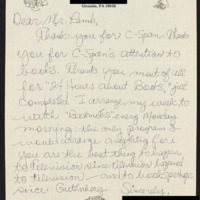 Glenside, PA 19038
Dear Mr. Lamb,
Thank you for C-Span. Thank
you for C-Span's attention to
books. Thank you most of all
for "24 Hours about Books," just
completed. I arrange my week to
watch "Booknotes" every Monday
morning - the only program I
would arrange anything for.
You are the best thing to happen
to television since television happened
to television - and to books perhaps
since Gutenberg.
Sincerely,